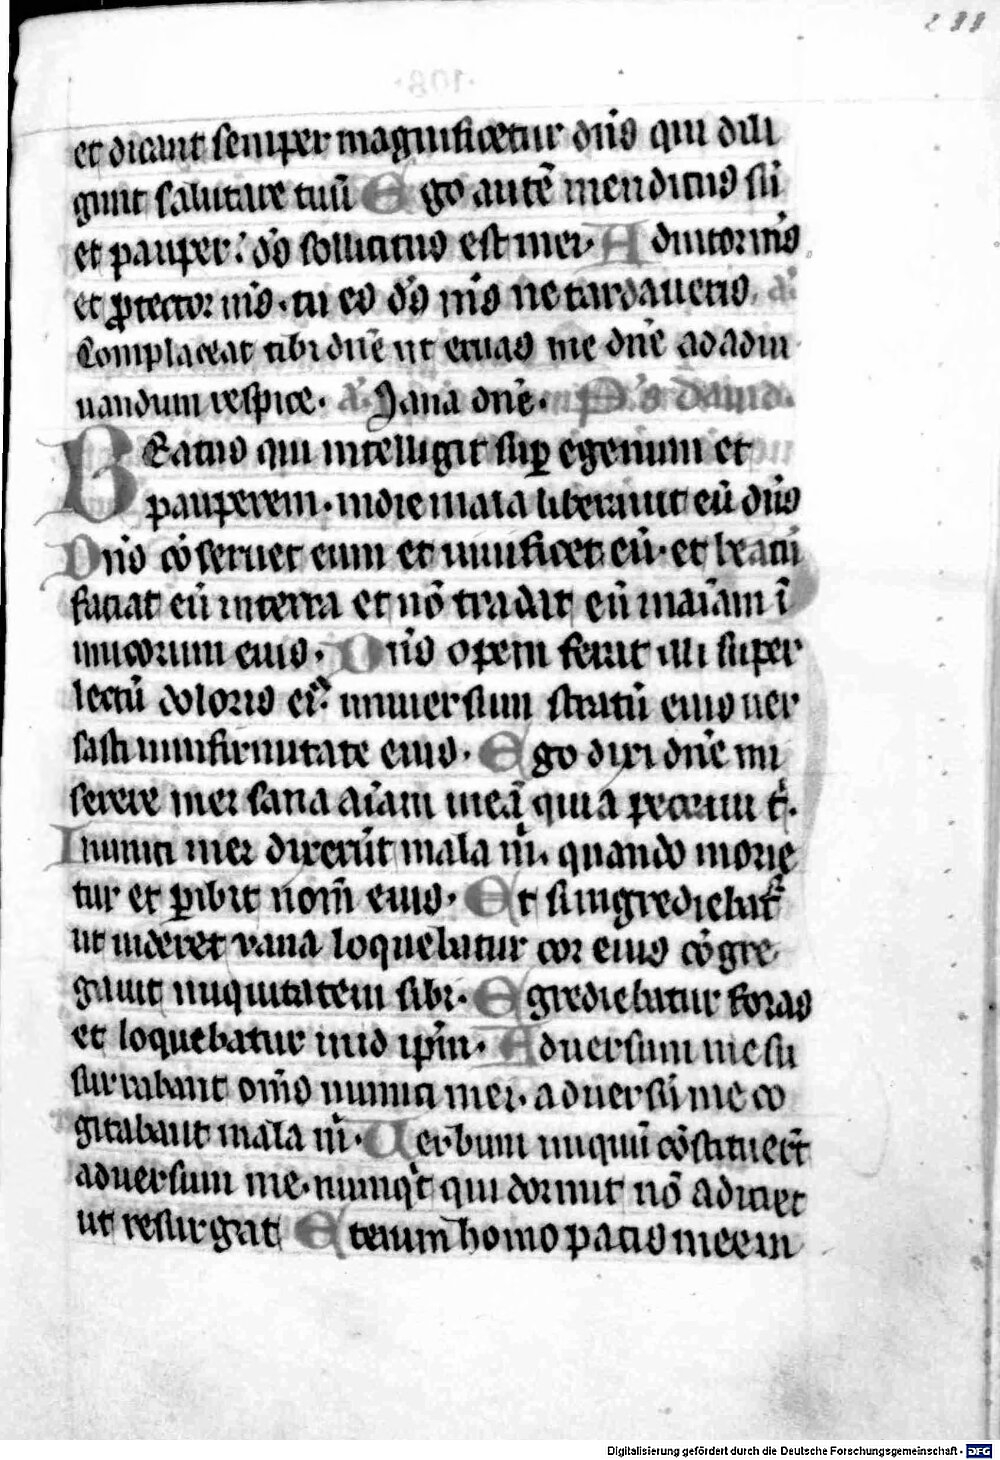 et dicant semper magnificetur dn̄s qui dili
gunt salutare tuū Ego autē mendicus sū
et pauper: d̄s sollicitus est mei. Adiutor m̄s
et ꝓtector m̄s. tu es d̄s m̄s ne tardaueris. a̅
Complaceat tibi dn̄e ut eruas me dn̄e ad adiu
uandum respice. a̅ Sana dn̄e. Ps̄ dauid.
Beatus qui intelligit suꝑ egenum et
pauperem. in die mala liberauit eū dn̄s
Dn̄s cōseruet eum et uiuificet eū. et beatū
faciat eū in terra et nō tradat eū in aīam ī
imicorum eius. Dn̄s opem ferat illi super
lectū doloris ei᷒. uniuersum stratū eius uer
sasti in infirmitate eius. Ego dixi dn̄e mi
serere mei sana aīam meā quia peccaui t.
Inimici mei dixerūt mala m. quando morie
tur et ꝑibit nom̄ eius. Et si ingrediebat᷑
ut uideret vana loquebatur cor eius cōgre
gauit iniquitatem sibi. Egrediebatur foras
et loquebatur in id ip̄m. Aduersum me su
surrabant om̄s inimici mei. aduersū me co
gitabant mala m. Uerbum iniquū cōstituert̄
aduersum me. numq̇d qui dormit nō adiciet
ut resurgat Etenim homo pacis mee in
Digitalisierung gefördert durch die Deutsche Forschungsgemeinschaft - DFG